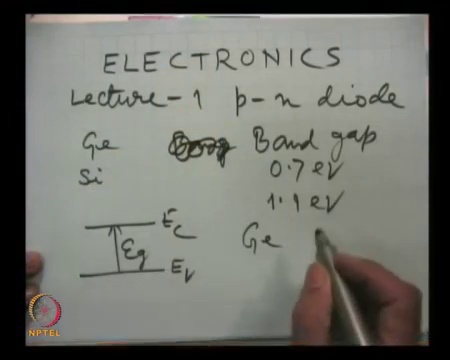 ELECTRONICS
Lecture - 1 p-n diode
Ge Band gap
Si 0.7 eV
1.1 eV
Ec
Eg
Ev
Ge
NPTEL